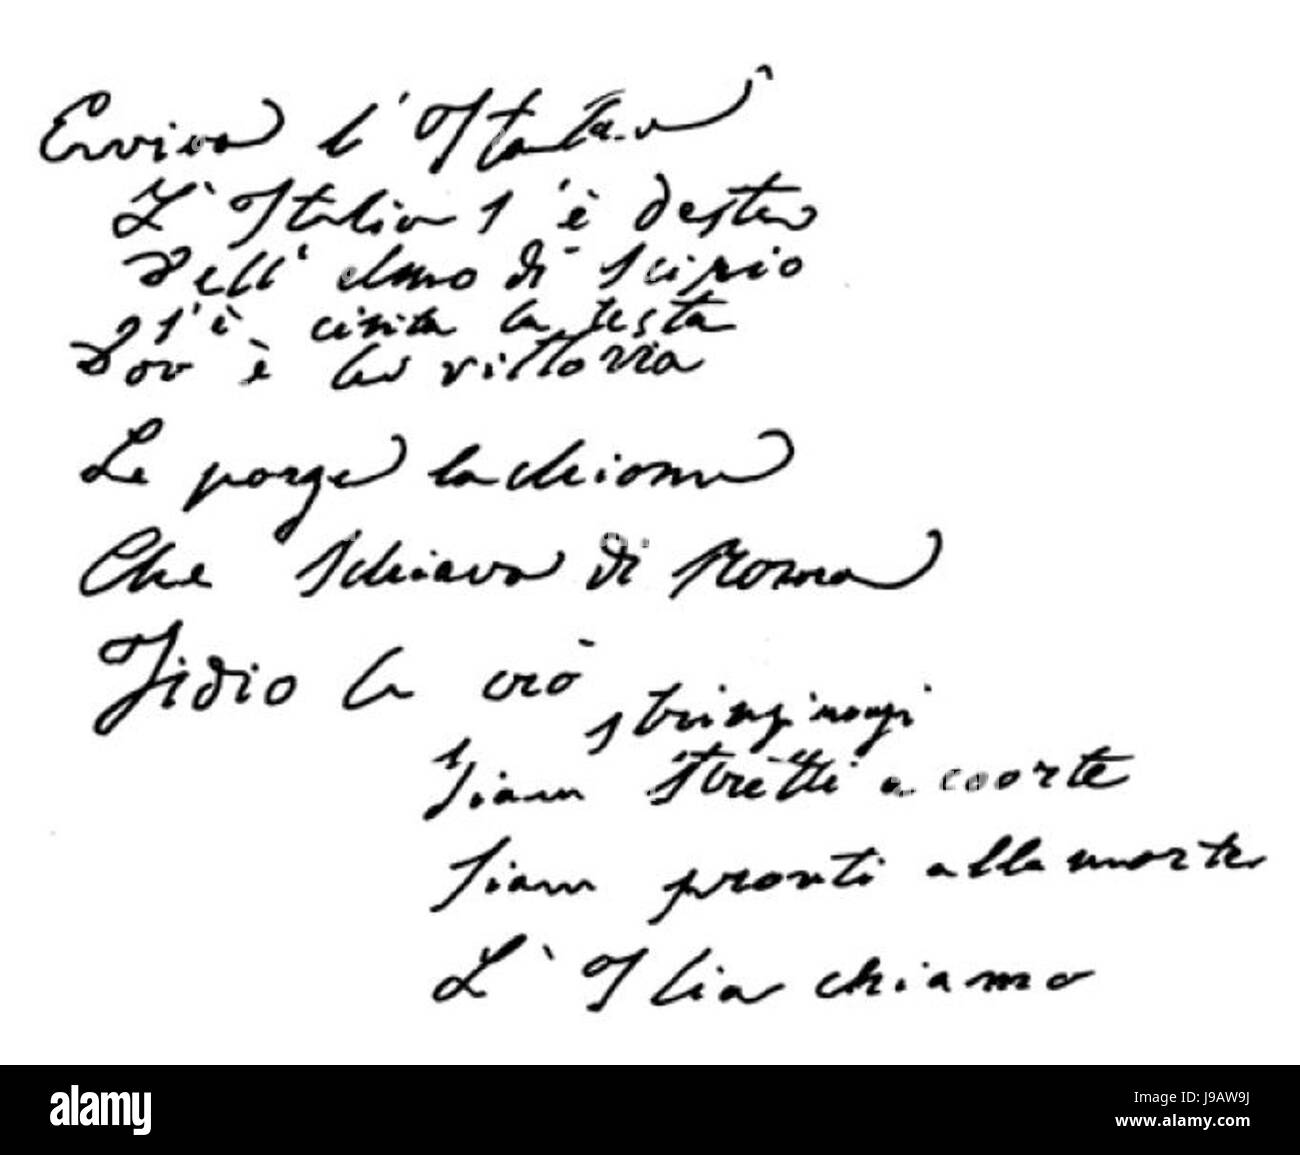 Evviva l'Italia
L'Italia s'è desta
Dell'elmo di Scipio
s'è cinta la testa
Dov è la vittoria
Le porge la chioma
Che schiava di Roma
Iddio la creò
stringiamoci
Siam stretti a coorte
Siam pronti alla morte
L'Itlia chiamo
alamy stock photo
alamy
Image ID: J9AW9J
www.alamy.com